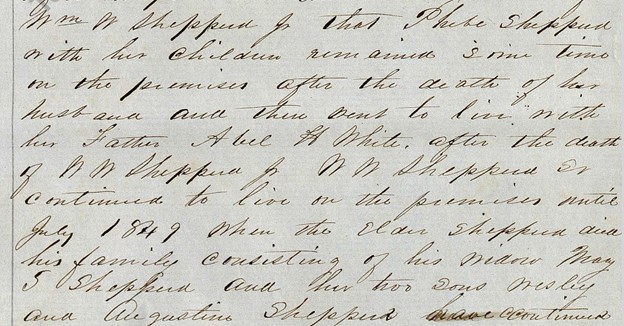 Wm W Shepperd Jr that Phebe Shepperd
with her children remained some time
on the premises after the death of her
husband and then went to live with
her Father Abel H White. after the death
of W W Shepperd Jr W W Shepperd Sr
continued to live on the premises until
July 1849 when the Elder Shepperd died
his family consisting of his widow May
S Shepperd and her two sons Wesley
and Augustine Shepperd have continued